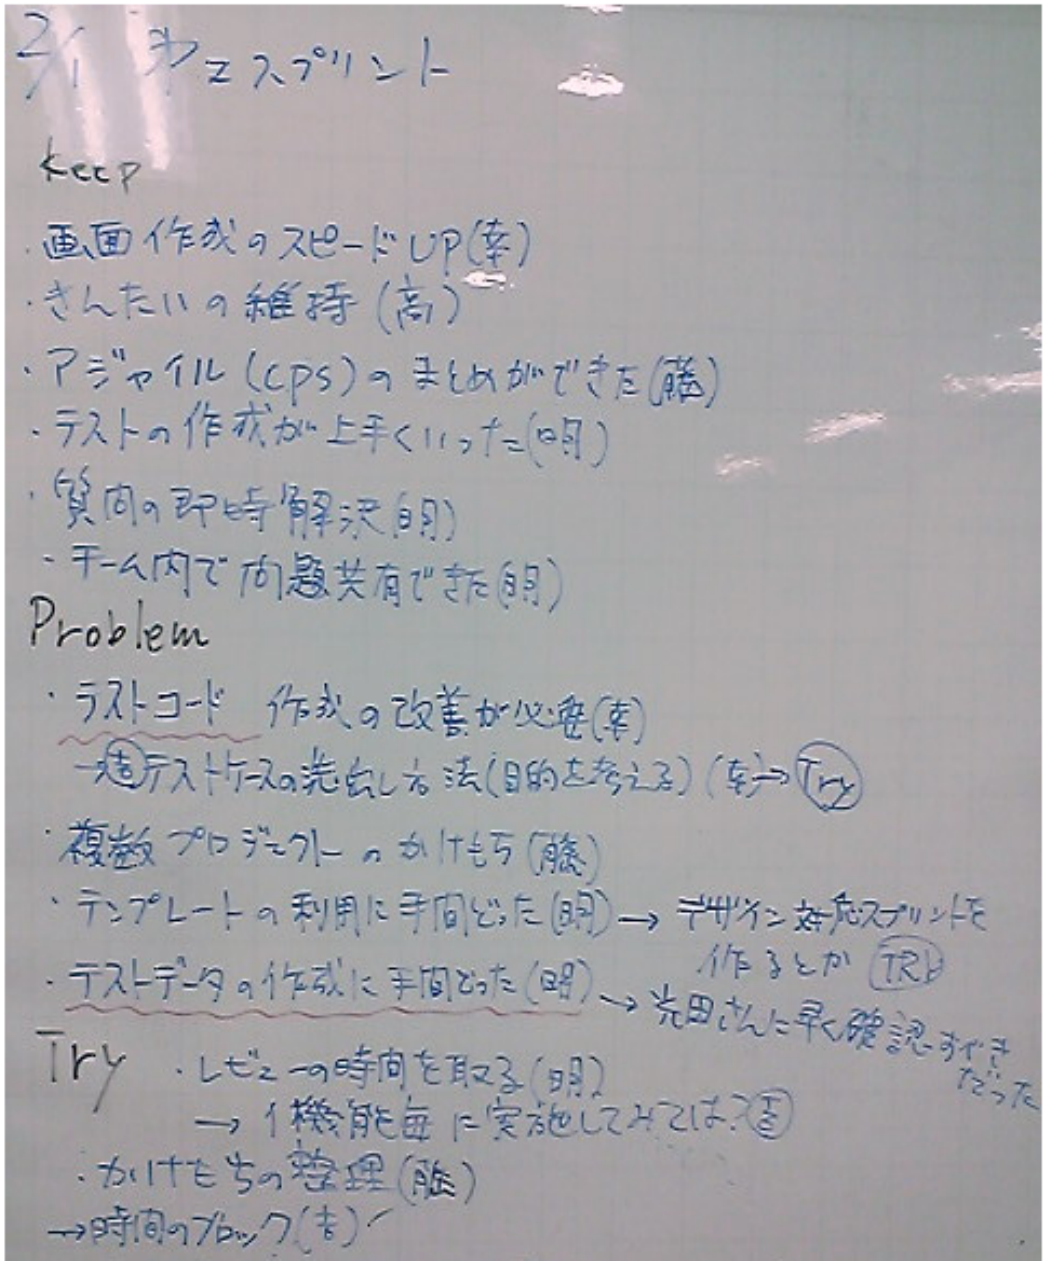 2/1 カエスプリント
keep
・画面作成のスピードUP(幸)
・きんたいの維持(高)
・アジャイル(cps)のまとめができた(藤)
・テストの作成が上手くいった(明)
・質問の即時解決(明)
・チーム内で問題共有できた(明)
Problem
・テストコード 作成の改善が必要(幸)
→吉テストケースの洗出し方法(目的を考える)(幸)→Try
・複数プロジェクトーのかけもち(藤)
・テンプレートの利用に手間どった(明)→デザイン対応スプリントを
作るとか TRY
・テストデータの作成に手間どった(明)→光田さんに早く確認すべき
だった
Try ・レビューの時間を取る(明)
→1機能毎に実施してみては?吉
・かけもちの整理(藤)
→時間のブロック(吉)